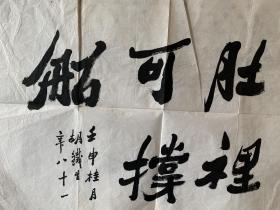 肚裡
可撐
船
壬申桂月
胡鐵生
年八十一